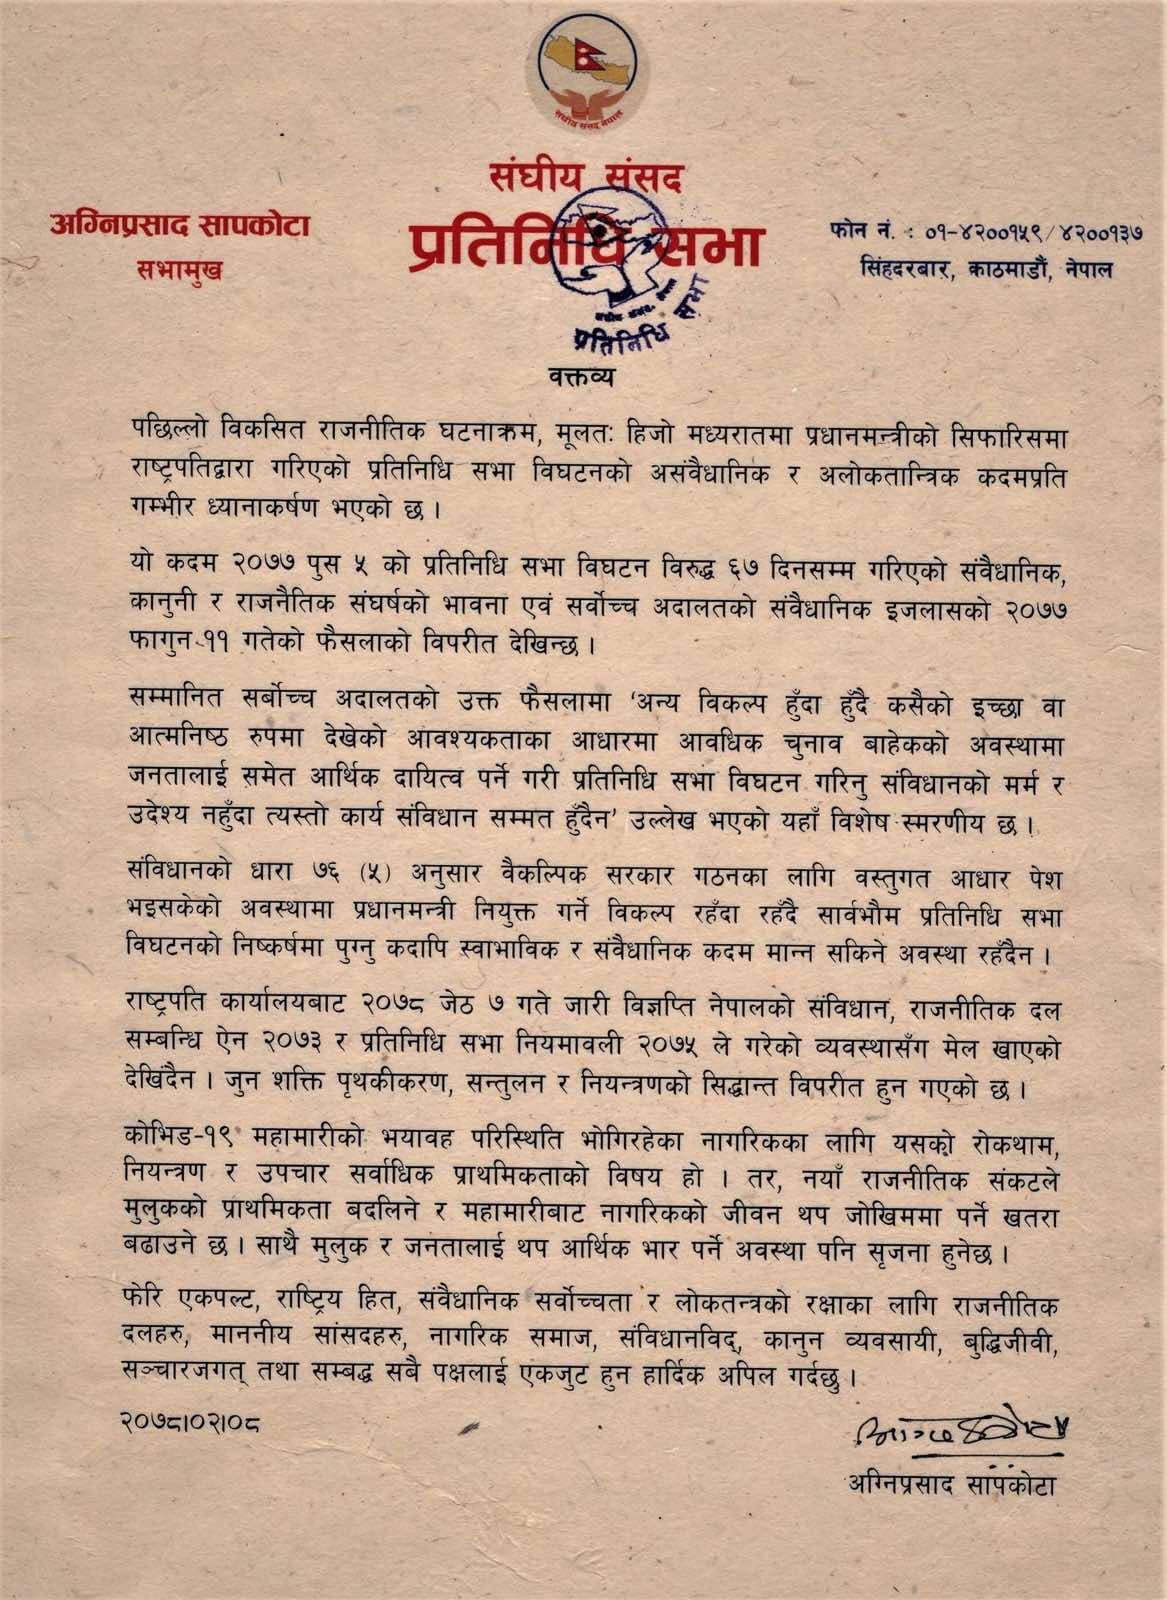 संघीय संसद नेपाल
संघीय संसद
अग्निप्रसाद सापकोटा
सभामुख
प्रतिनिधि सभा
फोन नं. : ०१-४२००१५९/४२००१३७
सिंहदरबार, काठमाडौं, नेपाल
प्रतिनिधि सभा
वक्तव्य
पछिल्लो विकसित राजनीतिक घटनाक्रम, मूलतः हिजो मध्यरातमा प्रधानमन्त्रीको सिफारिसमा
राष्ट्रपतिद्वारा गरिएको प्रतिनिधि सभा विघटनको असंवैधानिक र अलोकतान्त्रिक कदमप्रति
गम्भीर ध्यानाकर्षण भएको छ ।
यो कदम २०७७ पुस ५ को प्रतिनिधि सभा विघटन विरुद्ध ६७ दिनसम्म गरिएको संवैधानिक,
कानुनी र राजनैतिक संघर्षको भावना एवं सर्वोच्च अदालतको संवैधानिक इजलासको २०७७
फागुन ११ गतेको फैसलाको विपरीत देखिन्छ ।
सम्मानित सर्बोच्च अदालतको उक्त फैसलामा 'अन्य विकल्प हुँदा हुँदै कसैको इच्छा वा
आत्मनिष्ठ रुपमा देखेको आवश्यकताका आधारमा आवधिक चुनाव बाहेकको अवस्थामा
जनतालाई समेत आर्थिक दायित्व पर्ने गरी प्रतिनिधि सभा विघटन गरिनु संविधानको मर्म र
उदेश्य नहुँदा त्यस्तो कार्य संविधान सम्मत हुँदैन' उल्लेख भएको यहाँ विशेष स्मरणीय छ ।
संविधानको धारा ७६ (५) अनुसार वैकल्पिक सरकार गठनका लागि वस्तुगत आधार पेश
भइसकेको अवस्थामा प्रधानमन्त्री नियुक्त गर्ने विकल्प रहँदा रहँदै सार्वभौम प्रतिनिधि सभा
विघटनको निष्कर्षमा पुग्नु कदापि स्वाभाविक र संवैधानिक कदम मान्न सकिने अवस्था रहँदैन ।
राष्ट्रपति कार्यालयबाट २०७८ जेठ ७ गते जारी विज्ञप्ति नेपालको संविधान, राजनीतिक दल
सम्बन्धि ऐन २०७३ र प्रतिनिधि सभा नियमावली २०७५ ले गरेको व्यवस्थासँग मेल खाएको
देखिंदैन । जुन शक्ति पृथकीकरण, सन्तुलन र नियन्त्रणको सिद्धान्त विपरीत हुन गएको छ ।
कोभिड-१९ महामारीको भयावह परिस्थिति भोगिरहेका नागरिकका लागि यसको रोकथाम,
नियन्त्रण र उपचार सर्वाधिक प्राथमिकताको विषय हो । तर, नयाँ राजनीतिक संकटले
मुलुकको प्राथमिकता बदलिने र महामारीबाट नागरिकको जीवन थप जोखिममा पर्ने खतरा
बढाउने छ । साथै मुलुक र जनतालाई थप आर्थिक भार पर्ने अवस्था पनि सृजना हुनेछ ।
फेरि एकपल्ट, राष्ट्रिय हित, संवैधानिक सर्वोच्चता र लोकतन्त्रको रक्षाका लागि राजनीतिक
दलहरु, माननीय सांसदहरु, नागरिक समाज, संविधानविद्, कानुन व्यवसायी, बुद्धिजीवी,
सञ्चारजगत् तथा सम्बद्ध सबै पक्षलाई एकजुट हुन हार्दिक अपिल गर्दछु ।
२०७८।०२।०८
अग्निप्रसाद सापकोटा